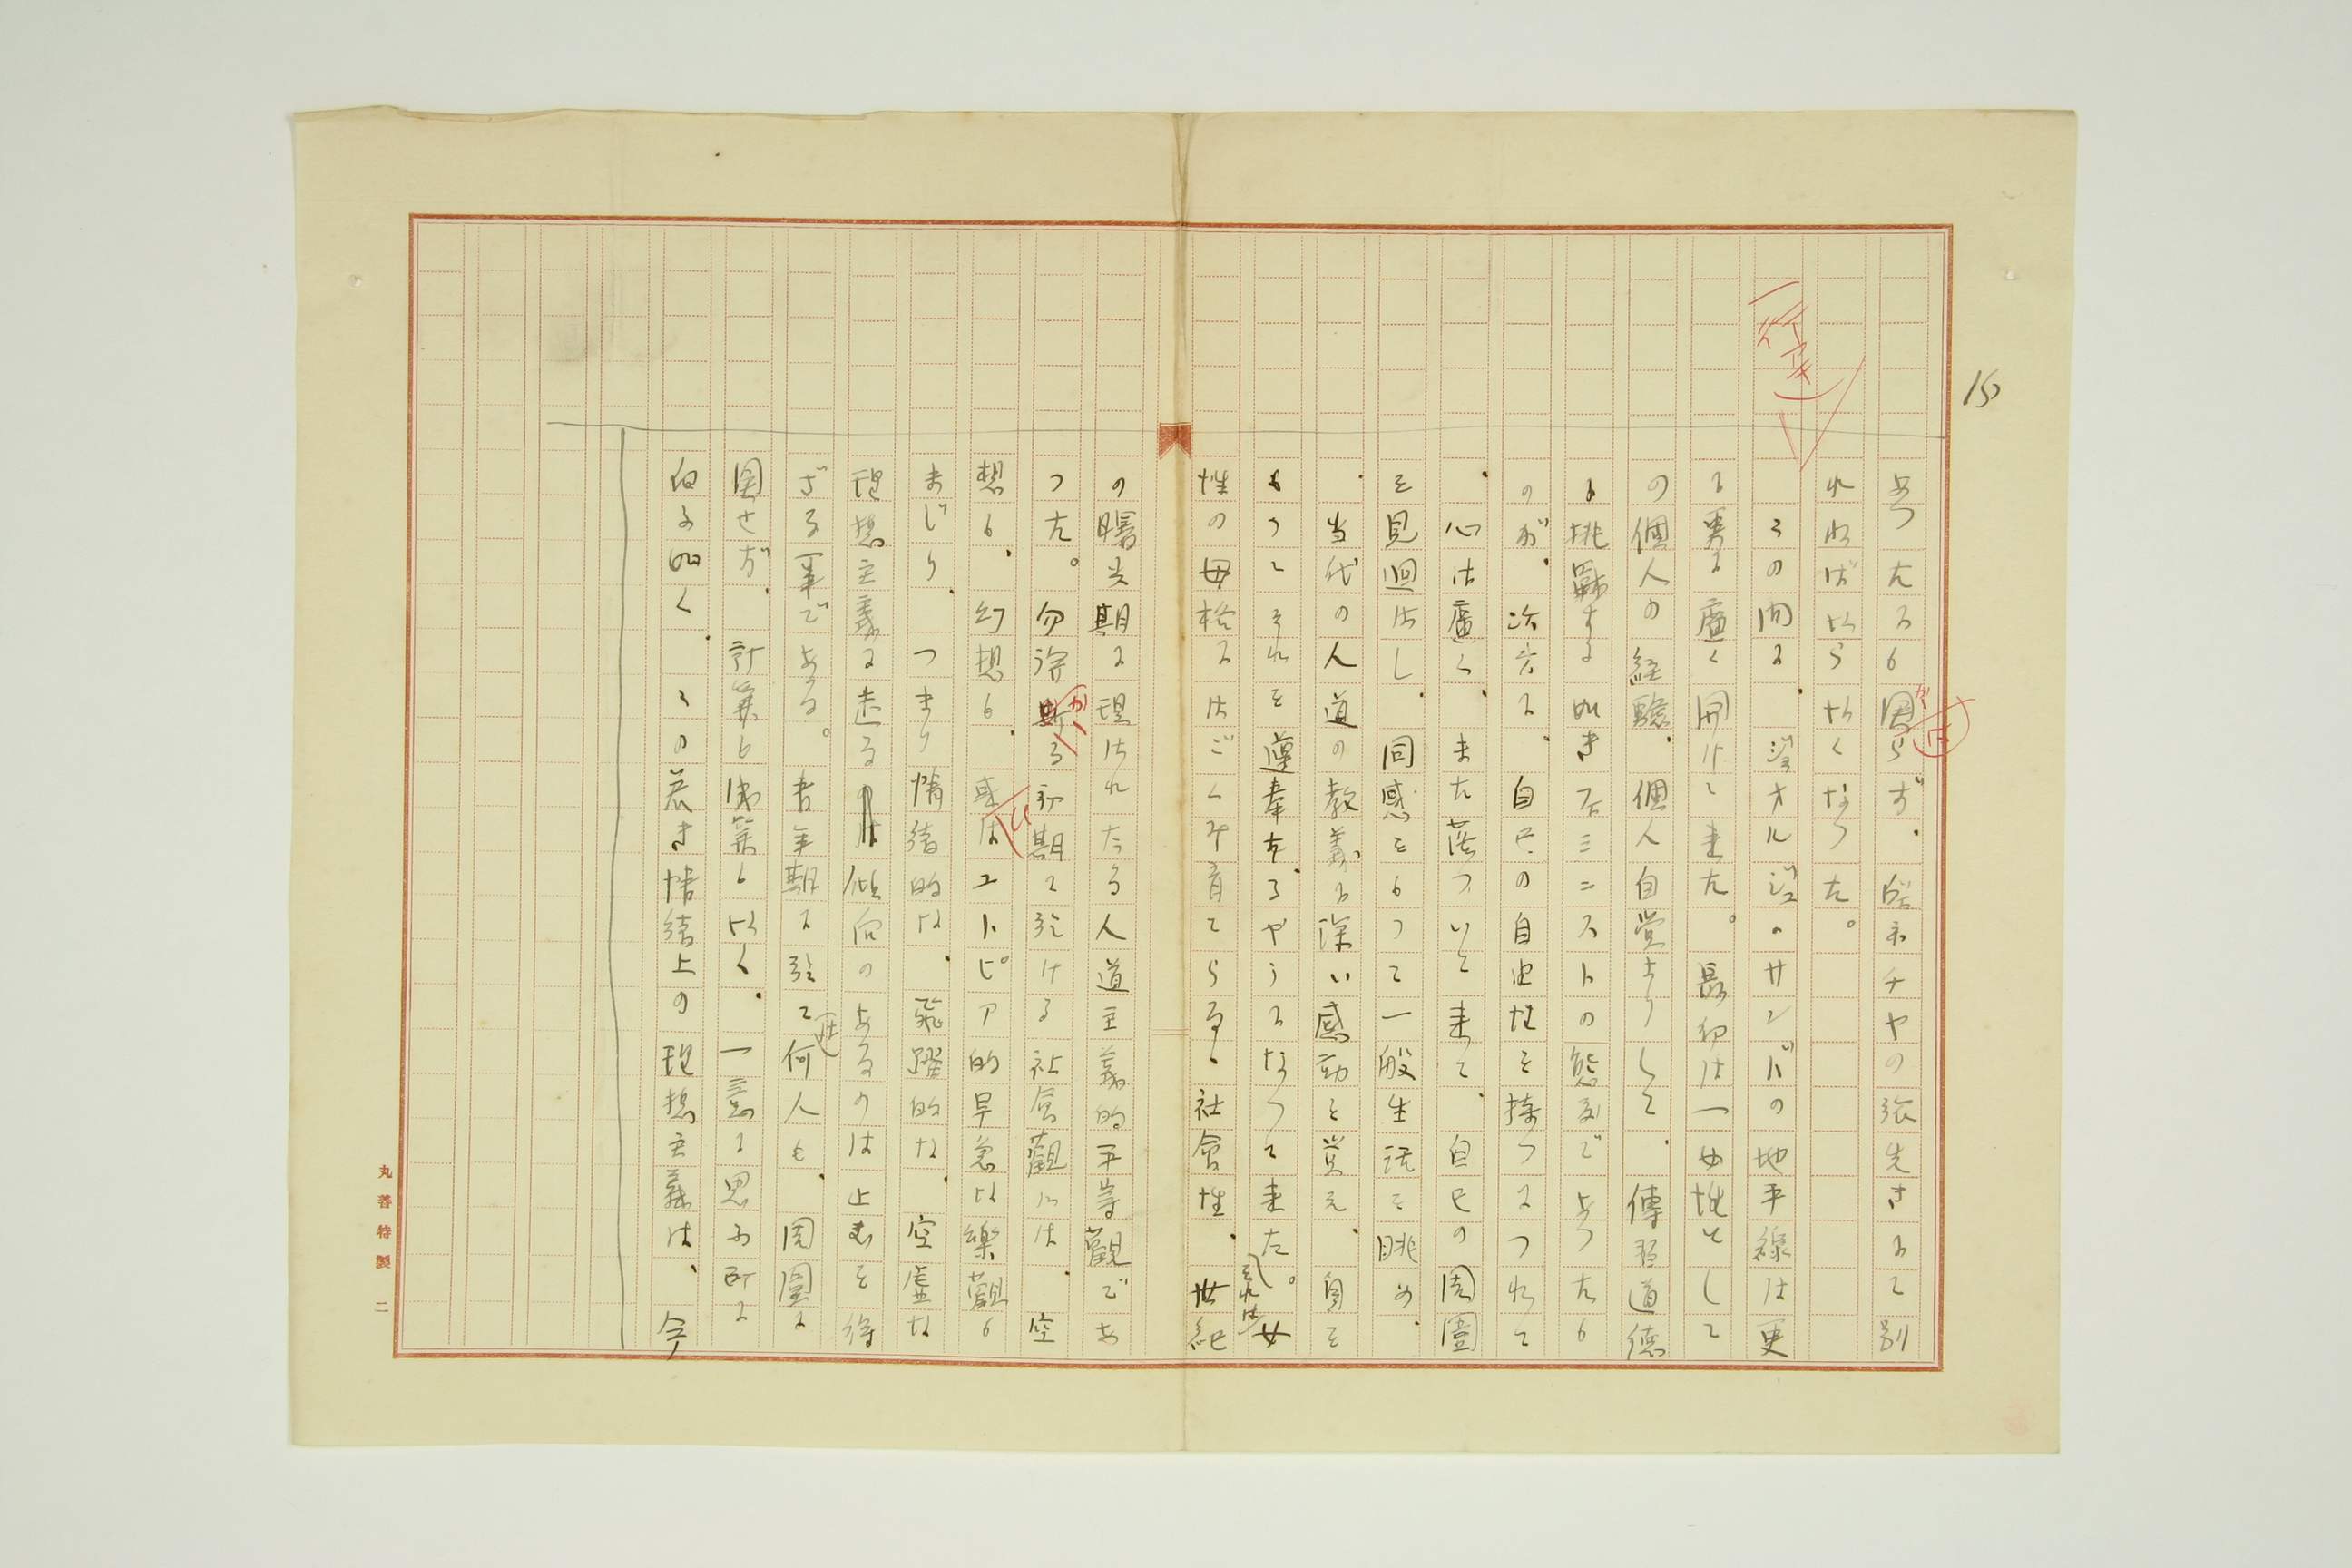 15
あつたにも関らず、ヴェネチヤの旅先きにて別
れねばならなくなつた。
この間に、ジヨオルジユ・サンドの地平線は更
に更に広く開けて来た。最初は一女性として
の個人の経験、個人自覚よりして、傳習道徳
に挑戦する如きフエミニストの態度であつたも
のが、次第に、自己の自由性を持つにつれて
、心は廣く、また落ついて来て、自己の周圍
を見廻はし、同感をもつて一般生活を眺め、
、当代の人道の教義に深い感動を覚え、自を
もつてそれを遵奉するやうになつて来た。それは女
性の母格にはごくみ育てらるゝ社會性、世紀
の曙光期に現はれたる人道主義的平等観であ
つた。勿論斯る初期に於ける社會觀には、空
想も、幻想も、或はユートピア的早急な樂觀も
まじり、つまり情緒的な、飛躍的な、空虚な
理想主義に走る傾向のあるのは止むを得
ざる事である。青年期に於て何人も、周圍に
関せず、計算も誤算もなく、一意に思ふ所に
向ふ如く、この若き情緒上の理想主義は、今
丸善特製 二